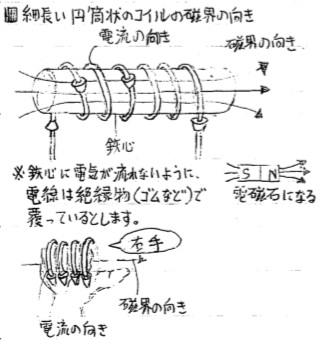 細長い円筒状のコイルの磁界の向き
電流の向き
磁界の向き
鉄心
※鉄心に電気が流れないように、
電線は絶縁物(ゴムなど)で
覆っているとします。
S N
電磁石になる
右手
磁界の向き
電流の向き